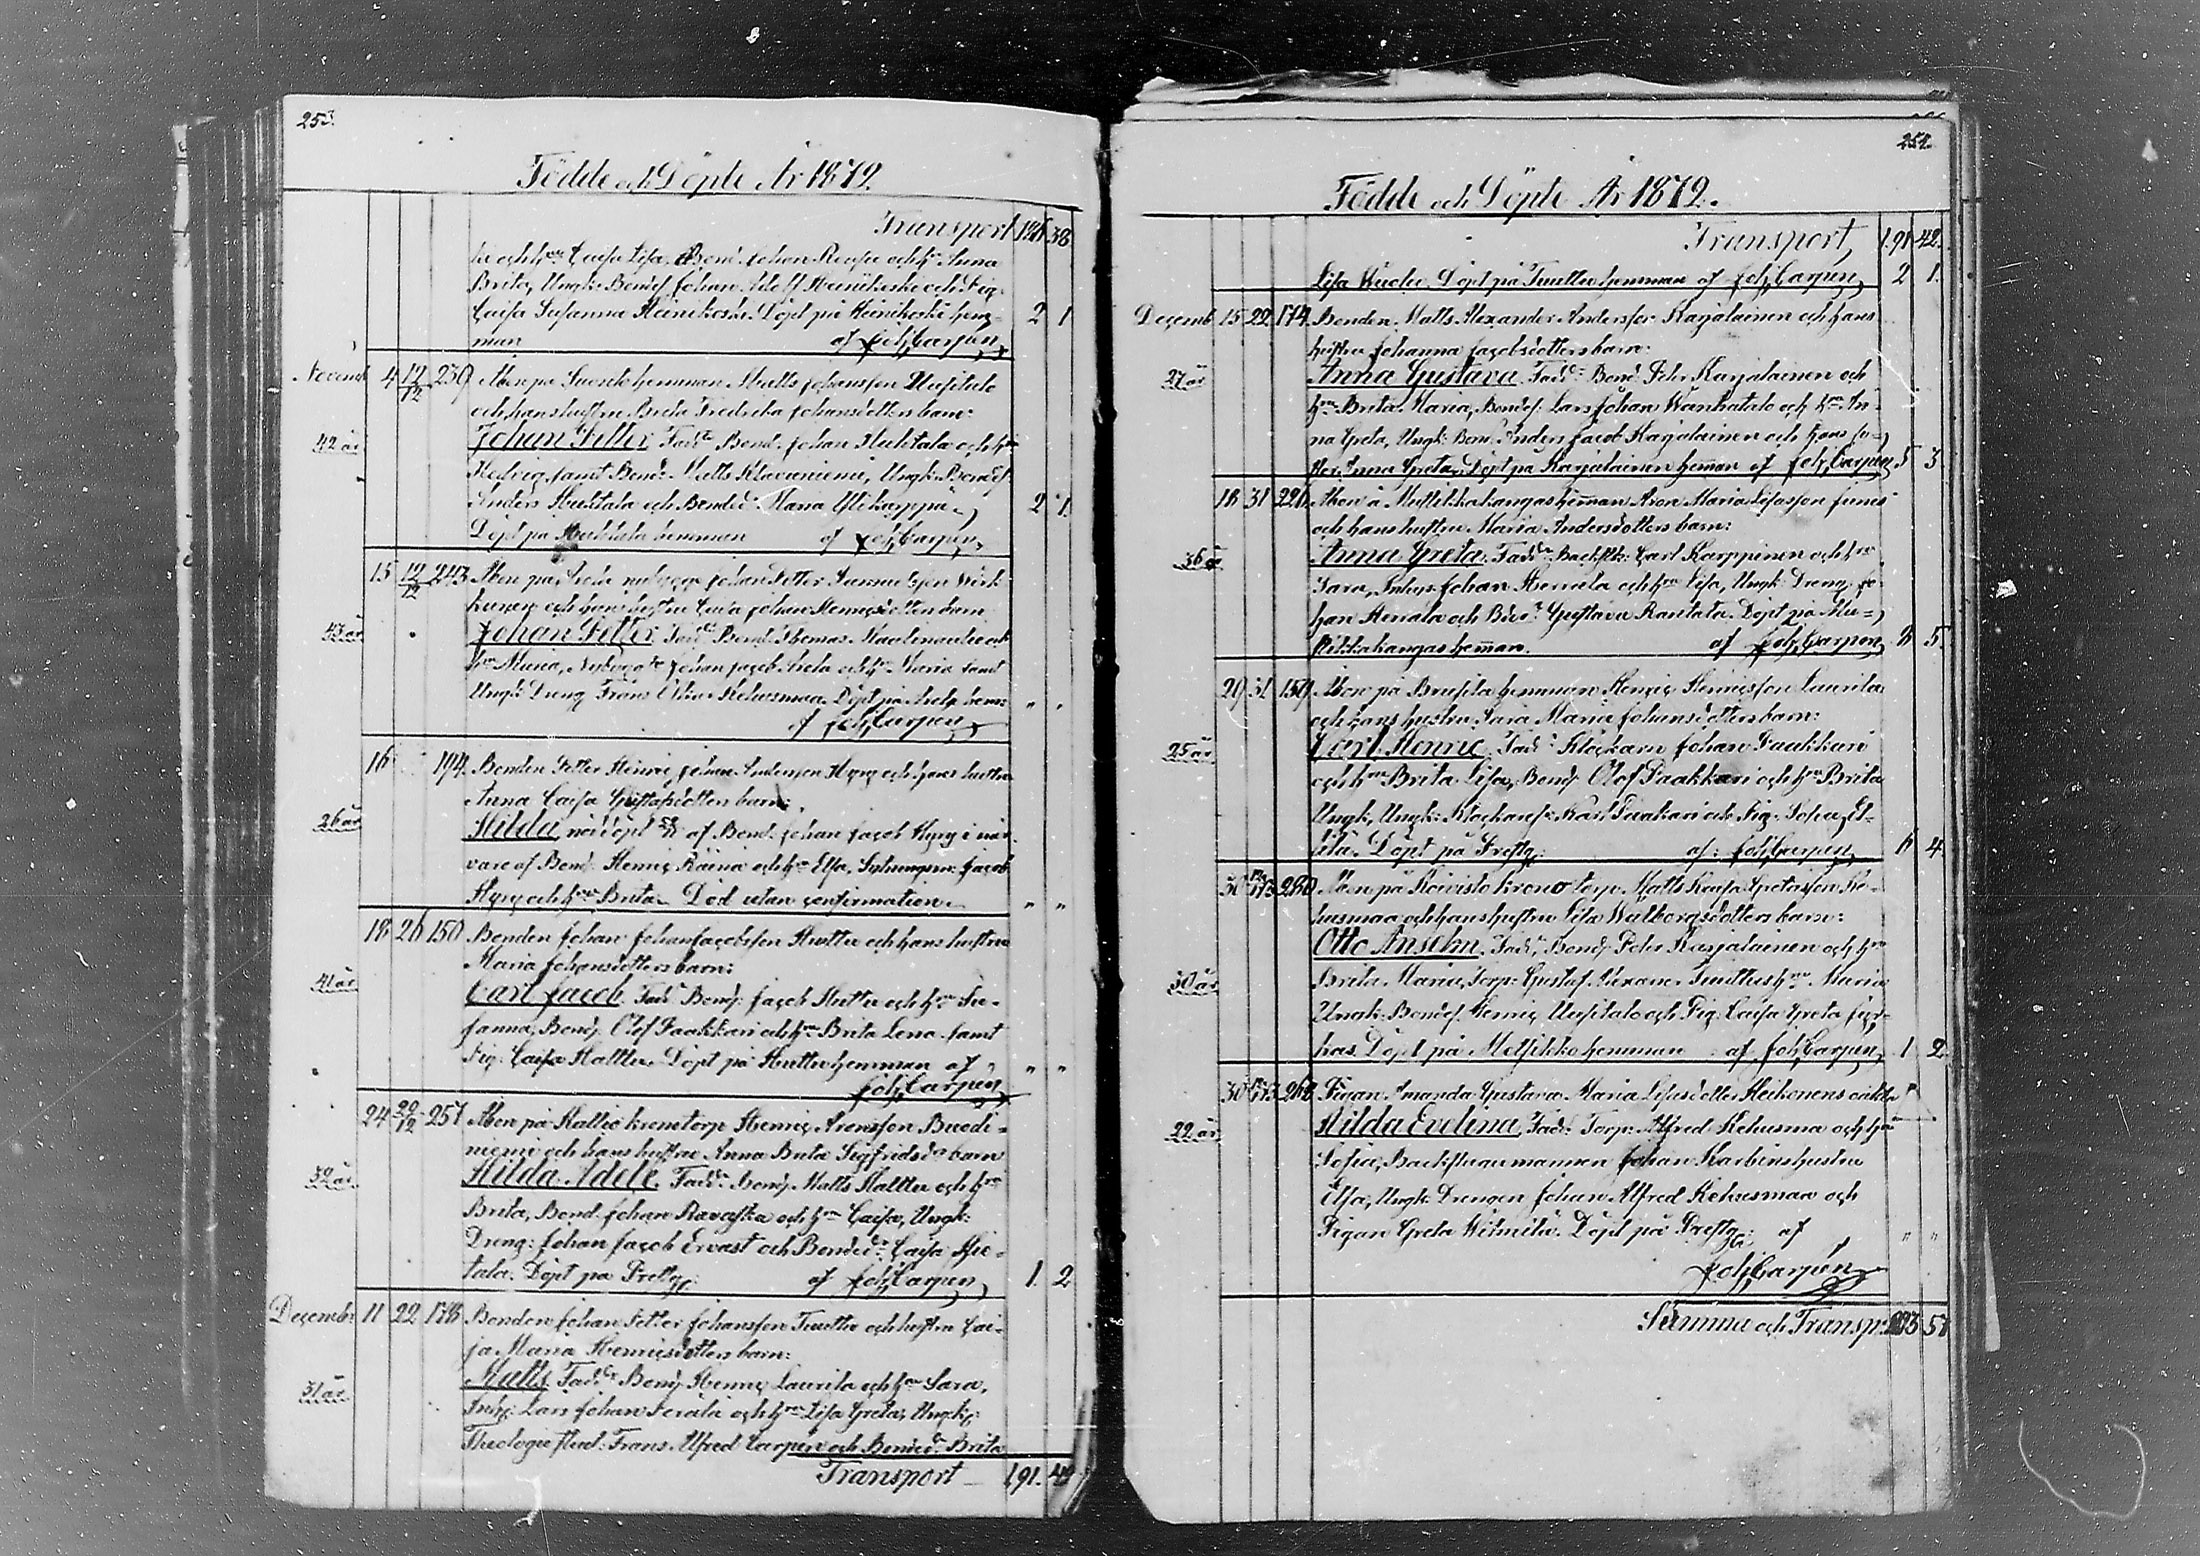 253.
Födde och Döpte År 1872.
Transport 186 38
ki och hru Caisa Lisa, Bond. Johan och hru Anna
Brita, Ungk. Bondes. Johan Adolf Heinikoski och Pig.
Caisa Susanna Heinikoski. Döpt på Heinikoski hem-
man af Joh. Carpén 2 1
Novemb 4 12/12 239 Åbon på hemman Matts Johansson Uusitalo
och hans hustru Brita Fredrika Johansdotters barn:
42 år Johan Petter. Fadd. Bond. Johan Huhtala och hru
Hedvig, samt Bond. Matts Klaavuniemi, Ungk. Bondes.
Anders Huhtala och Bonded. Maria Ylikärppä
Döpt på Huhtala hemman af Joh. Carpén 2 1
15 12/12 243 Åbon på nybygge Johan Petter
och hans hustru Caisa Johan Henricsdotters barn
43 år Johan Petter. Fadd. Bond. Thomas och
hru Maria, Nybygg. Johan Jacob och hru Maria samt
Ungk. Dreng Frans Kehusmaa. Döpt på hem:
af Joh. Carpén " "
16 194 Bonden Petter Henric Johan Andersson Hyry och hans hustru
Anna Caisa Gustafsdotters barn:
26 år Hilda, nöddöpt af Bond. Johan Jacob Hyry i när-
varo af Bond. Henric Räinä och hru Elsa, Jacob
Hyry och hru Brita. Död utan confirmation. " "
18 26 150 Bonden Johan Johan Jacobsson Huttu och hans hustru
Maria Johansdotters barn:
41 år Carl Jacob. Fadd. Bond. Jacob Huttu och hru Su-
sanna, Bond. Olof Paakkari och hru Brita Lena samt
Pig. Caisa Halttu. Döpt på Huttu hemman af " "
Joh. Carpén
24 22/12 257 Åbon på Kallio kronotorp Henric Aronsson
niemi och hans hustru Anna Brita Sigfridsd. barn
32 år Hilda Adele. Fadd. Bond. Matts Halttu och hru
Brita, Bond. Johan Ravaska och hru Caisa, Ungk:
Dreng: Johan Jacob Ervast och Bonded. Caisa Hie-
tala. Döpt på Prestg: af Joh. Carpén 1. 2
Decembr 11 22 178 Bonden Johan Petter Johansson Tuuttu och hustru Cai-
sa Maria Henricsdotters barn:
31 år Matts. Fadd. Bond. Henric Laurila och hru Sara,
Inhy: Lars Johan Perälä och hru Lisa Greta, Ungk:
Theologie stud: Frans Alfred Carpén och Bonded. Brita
Transport 191. 42
254.
Födde och Döpte År 1872.
Transport 191 42.
Lisa Döpt på Tuuttu hemman af Joh. Carpén 2 1.
Decemb 15 22 174 Bonden Matts Alexander Andersson Karjalainen och hans
hustru Johanna Jacobsdotters barn:
27 år Anna Gustava. Fadd. Bond. Petr Karjalainen och
hru Brita Maria, Bondes. Lars Johan Wanhatalo och hru An-
na Greta, Ungk. Bond. Anders Jacob Karjalainen och hans sy-
ster Anna Greta. Döpt på Karjalainen hemman af Joh. Carpén 5 3
18 31 220 Åbon å Muttikkakangas hemman Aron Maria Lisasson
och hans hustru Maria Andersdotters barn:
36 år Anna Greta. Fadd. Backstk: Carl Karppinen och hru
Sara, Inhys. Johan Heinula och hru Lisa, Ungk. Dreng Jo-
han Heinula och Gustava Rantala. Döpt på Mu-
tikkakangas hemman. af Joh. Carpén 8 5
29 31 159 Åbon på hemman Henric Henricsson Laurila
och hans hustru Sara Maria Johansdotters barn:
25 år Carl Henric. Fadd. Klockarn Johan Paakkari
och hru Brita Lisa, Bond. Olof Paakkari och hru Brita
Ungk, Ungk: Klockares. Karl Paakkari och Pig. Sofia
Döpt på Prestg: af: Joh. Carpén 6 4
30 1/1 73 260 Åbon på Koivisto krono torp Matts Kaisa Gretasson Ke-
husmaa och hans hustru Lisa Walborgsdotters barn:
Otto Anselm. Fadd. Bond. Petr Karjalainen och hru
30 år Brita Maria, Torp: Gustaf Alexander Tuuttus hru Maria
Ungk. Bondes. Henric Uusitalo och Pig. Caisa Greta
kas. Döpt på hemman af Joh. Carpén 1 2
30 1/1 73 262 Pigan Amanda Gustava Maria Lisasdotter Heikkonens oäkta
22 år Hilda Evelina. Fadd. Torp: Alfred Kehusmaa och hru
Sofia, Backstugumannen Johan hustru
Elsa, Ungk. Drengen Johan Alfred Kehusmaa och
Pigan Greta Döpt på Prestg: af " "
Joh. Carpén
Summa och Transp: 213 57